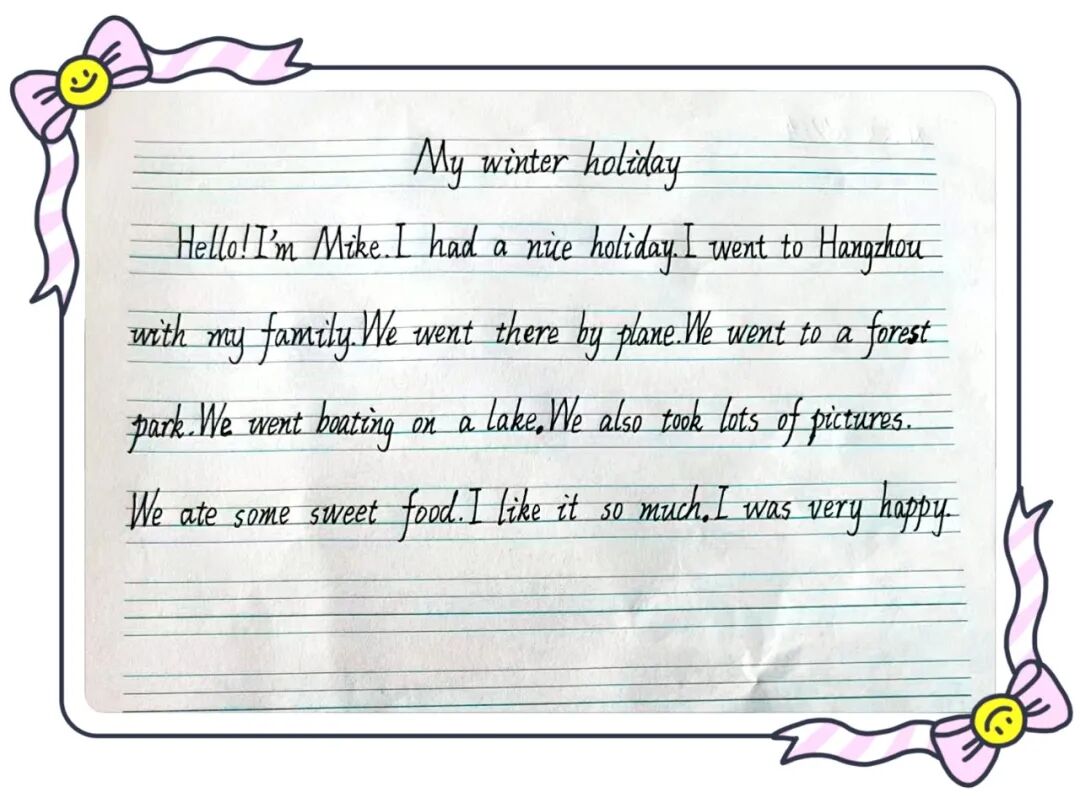 My winter holiday
Hello! I'm Mike. I had a nice holiday. I went to Hangzhou
with my family. We went there by plane. We went to a forest
park. We went boating on a lake. We also took lots of pictures.
We ate some sweet food. I like it so much. I was very happy.